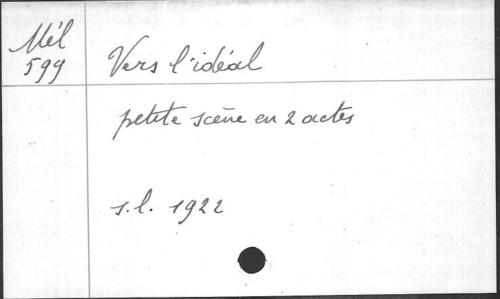 Mél
599
Vers l'idéal
petite scène en 2 actes
s.l. 1922